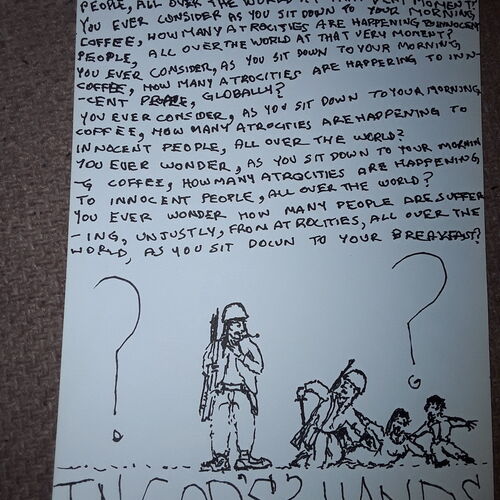 PEOPLE, ALL OVER THE WORLD AT THAT VERY MOMENT?
YOU EVER CONSIDER AS YOU SIT DOWN TO YOUR MORNING
COFFEE, HOW MANY ATROCITIES ARE HAPPENING TO INNOCENT
PEOPLE, ALL OVER THE WORLD AT THAT VERY MOMENT?
YOU EVER CONSIDER, AS YOU SIT DOWN TO YOUR MORNING,
COFFEE, HOW MANY ATROCITIES ARE HAPPERING TO INN-
-CENT PEOPLE, GLOBALLY?
YOU EVER CONCIDER, AS YOU SIT DOWN TO YOUR MORNING
COFFEE, HOW MANY ATROCITIES ARE HAPPENING TO
INNOCENT PEOPLE, ALL OVER THE WORLD?
YOU EVER WONDER, AS YOU SIT DOWN TO YOUR MORNIN
-G COFFEE, HOW MANY ATROCITIES ARE HAPPENING
TO INNOCENT PEOPLE, ALL OVER THE WORLD?
YOU EVER WONDER HOW MANY PEOPLE ARE SUFFER
-ING, UNJUSTLY, FROM ATROCITIES, ALL OVER THE
WORLD, AS YOU SIT DOWN TO YOUR BREAKFAST?
? ?
IN GOD'S? HANDS